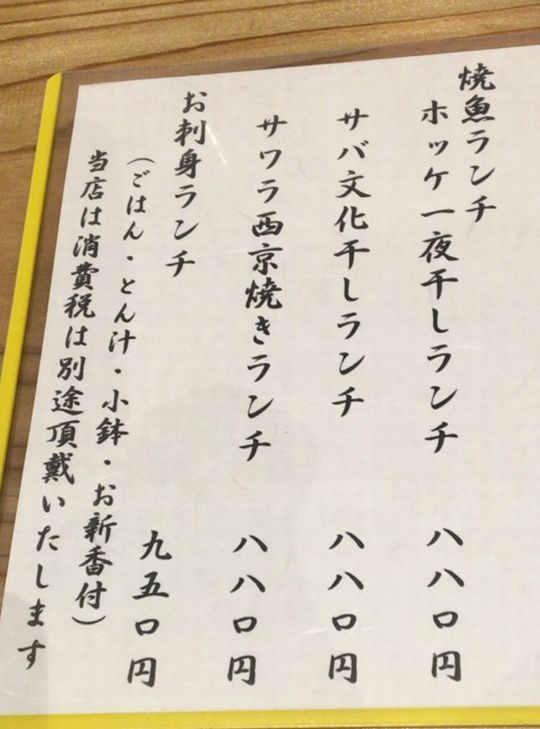 焼魚ランチ
ホッケ一夜干しランチ 八八〇円
サバ文化干しランチ 八八〇円
サワラ西京焼きランチ 八八〇円
お刺身ランチ 九五〇円
(ごはん・とん汁・小鉢・お新番付)
当店は消費税は別途頂戴いたします